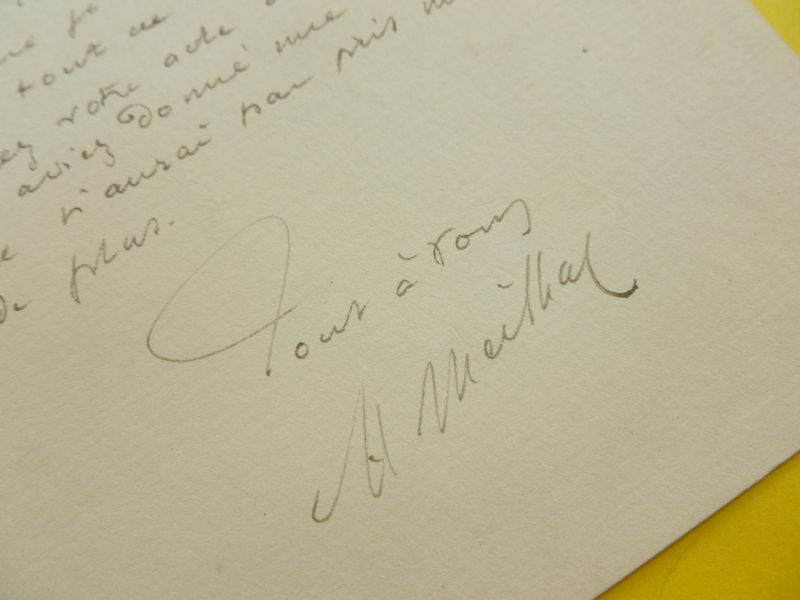 tout ce
votre acte
aviez donné une
n'aurai pas pris
de plus.
Tout à vous
H Meilhac